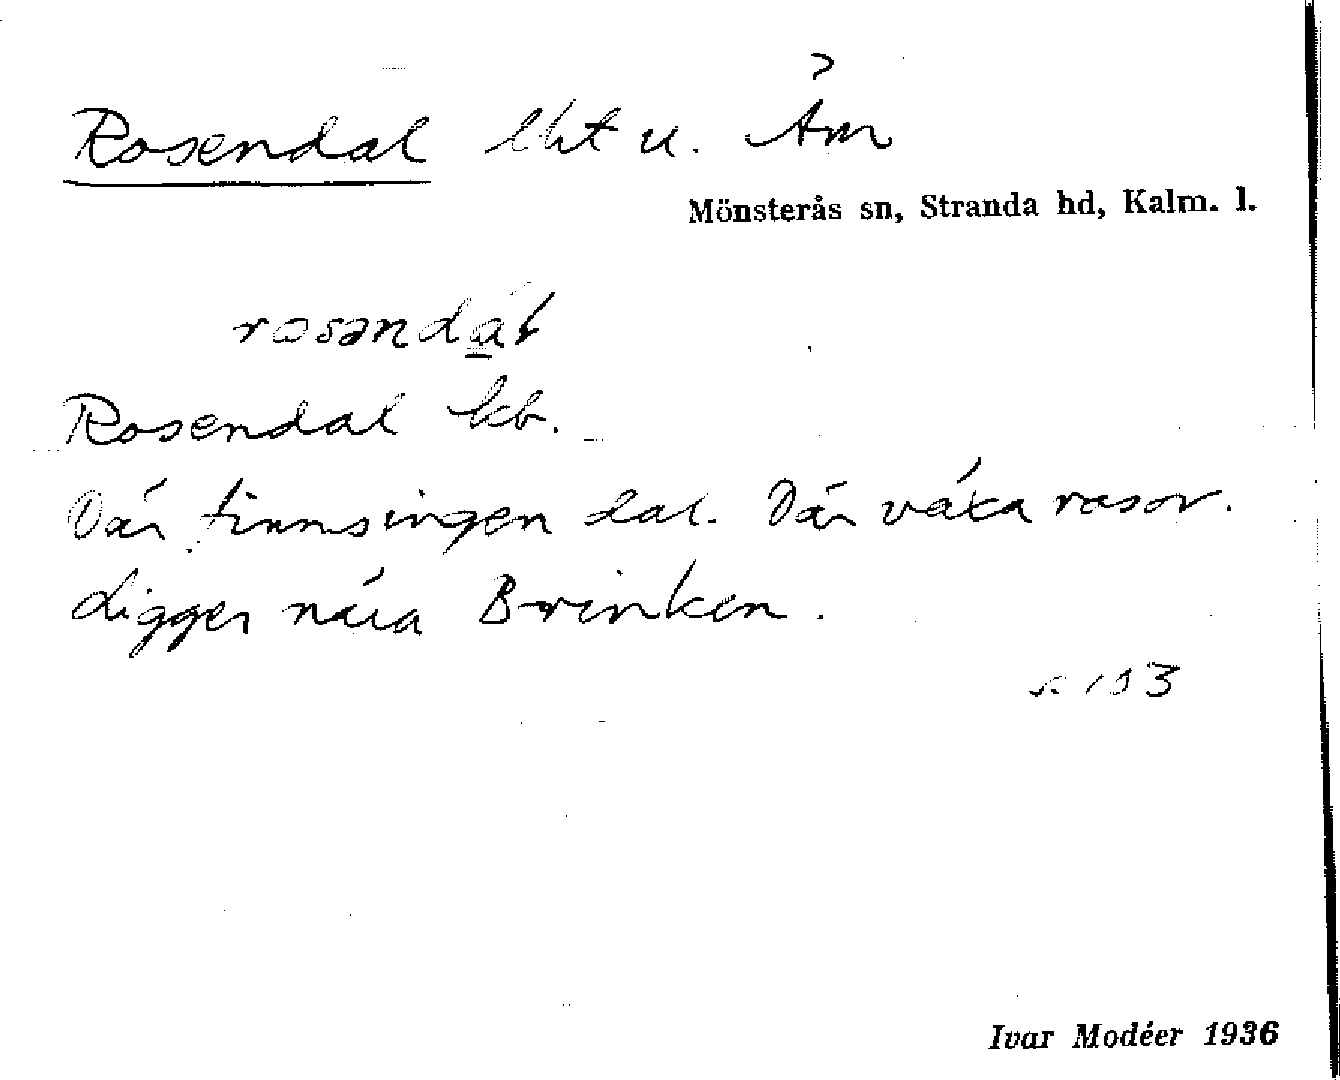 ?
Rosendal lht u. Åm
Mönsterås sn, Stranda hd, Kalm. l.
rosəndál
Rosendal kb.
Där finns ingen dal. Där växa rosor.
Ligger nära Brinken.
193
Ivar Modéer 1936